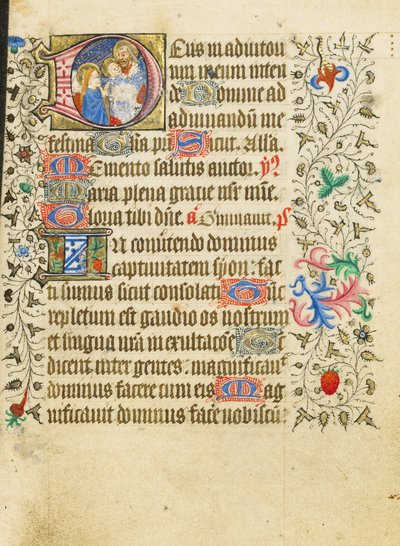 Deus in adiutori
um meum inten
de Domine ad
adiuuandū me
festina Glīa pr̄i Sicut. Allā
Memento salutis auctor. ℣
Maria plena gracie mr̄ mīe.
Gloria tibi dn̄e. a Germinauit. p̄s
In conuertendo dominus
captiuitatem syon: fac
ti sumus sicut consolati Tūc
repletum est gaudio os nostrum
et lingua nr̄a in exultacōe Tūc
dicent inter gentes: magnificauit
dominus facere cum eis Mag
nificauit dominus face nobiscū: